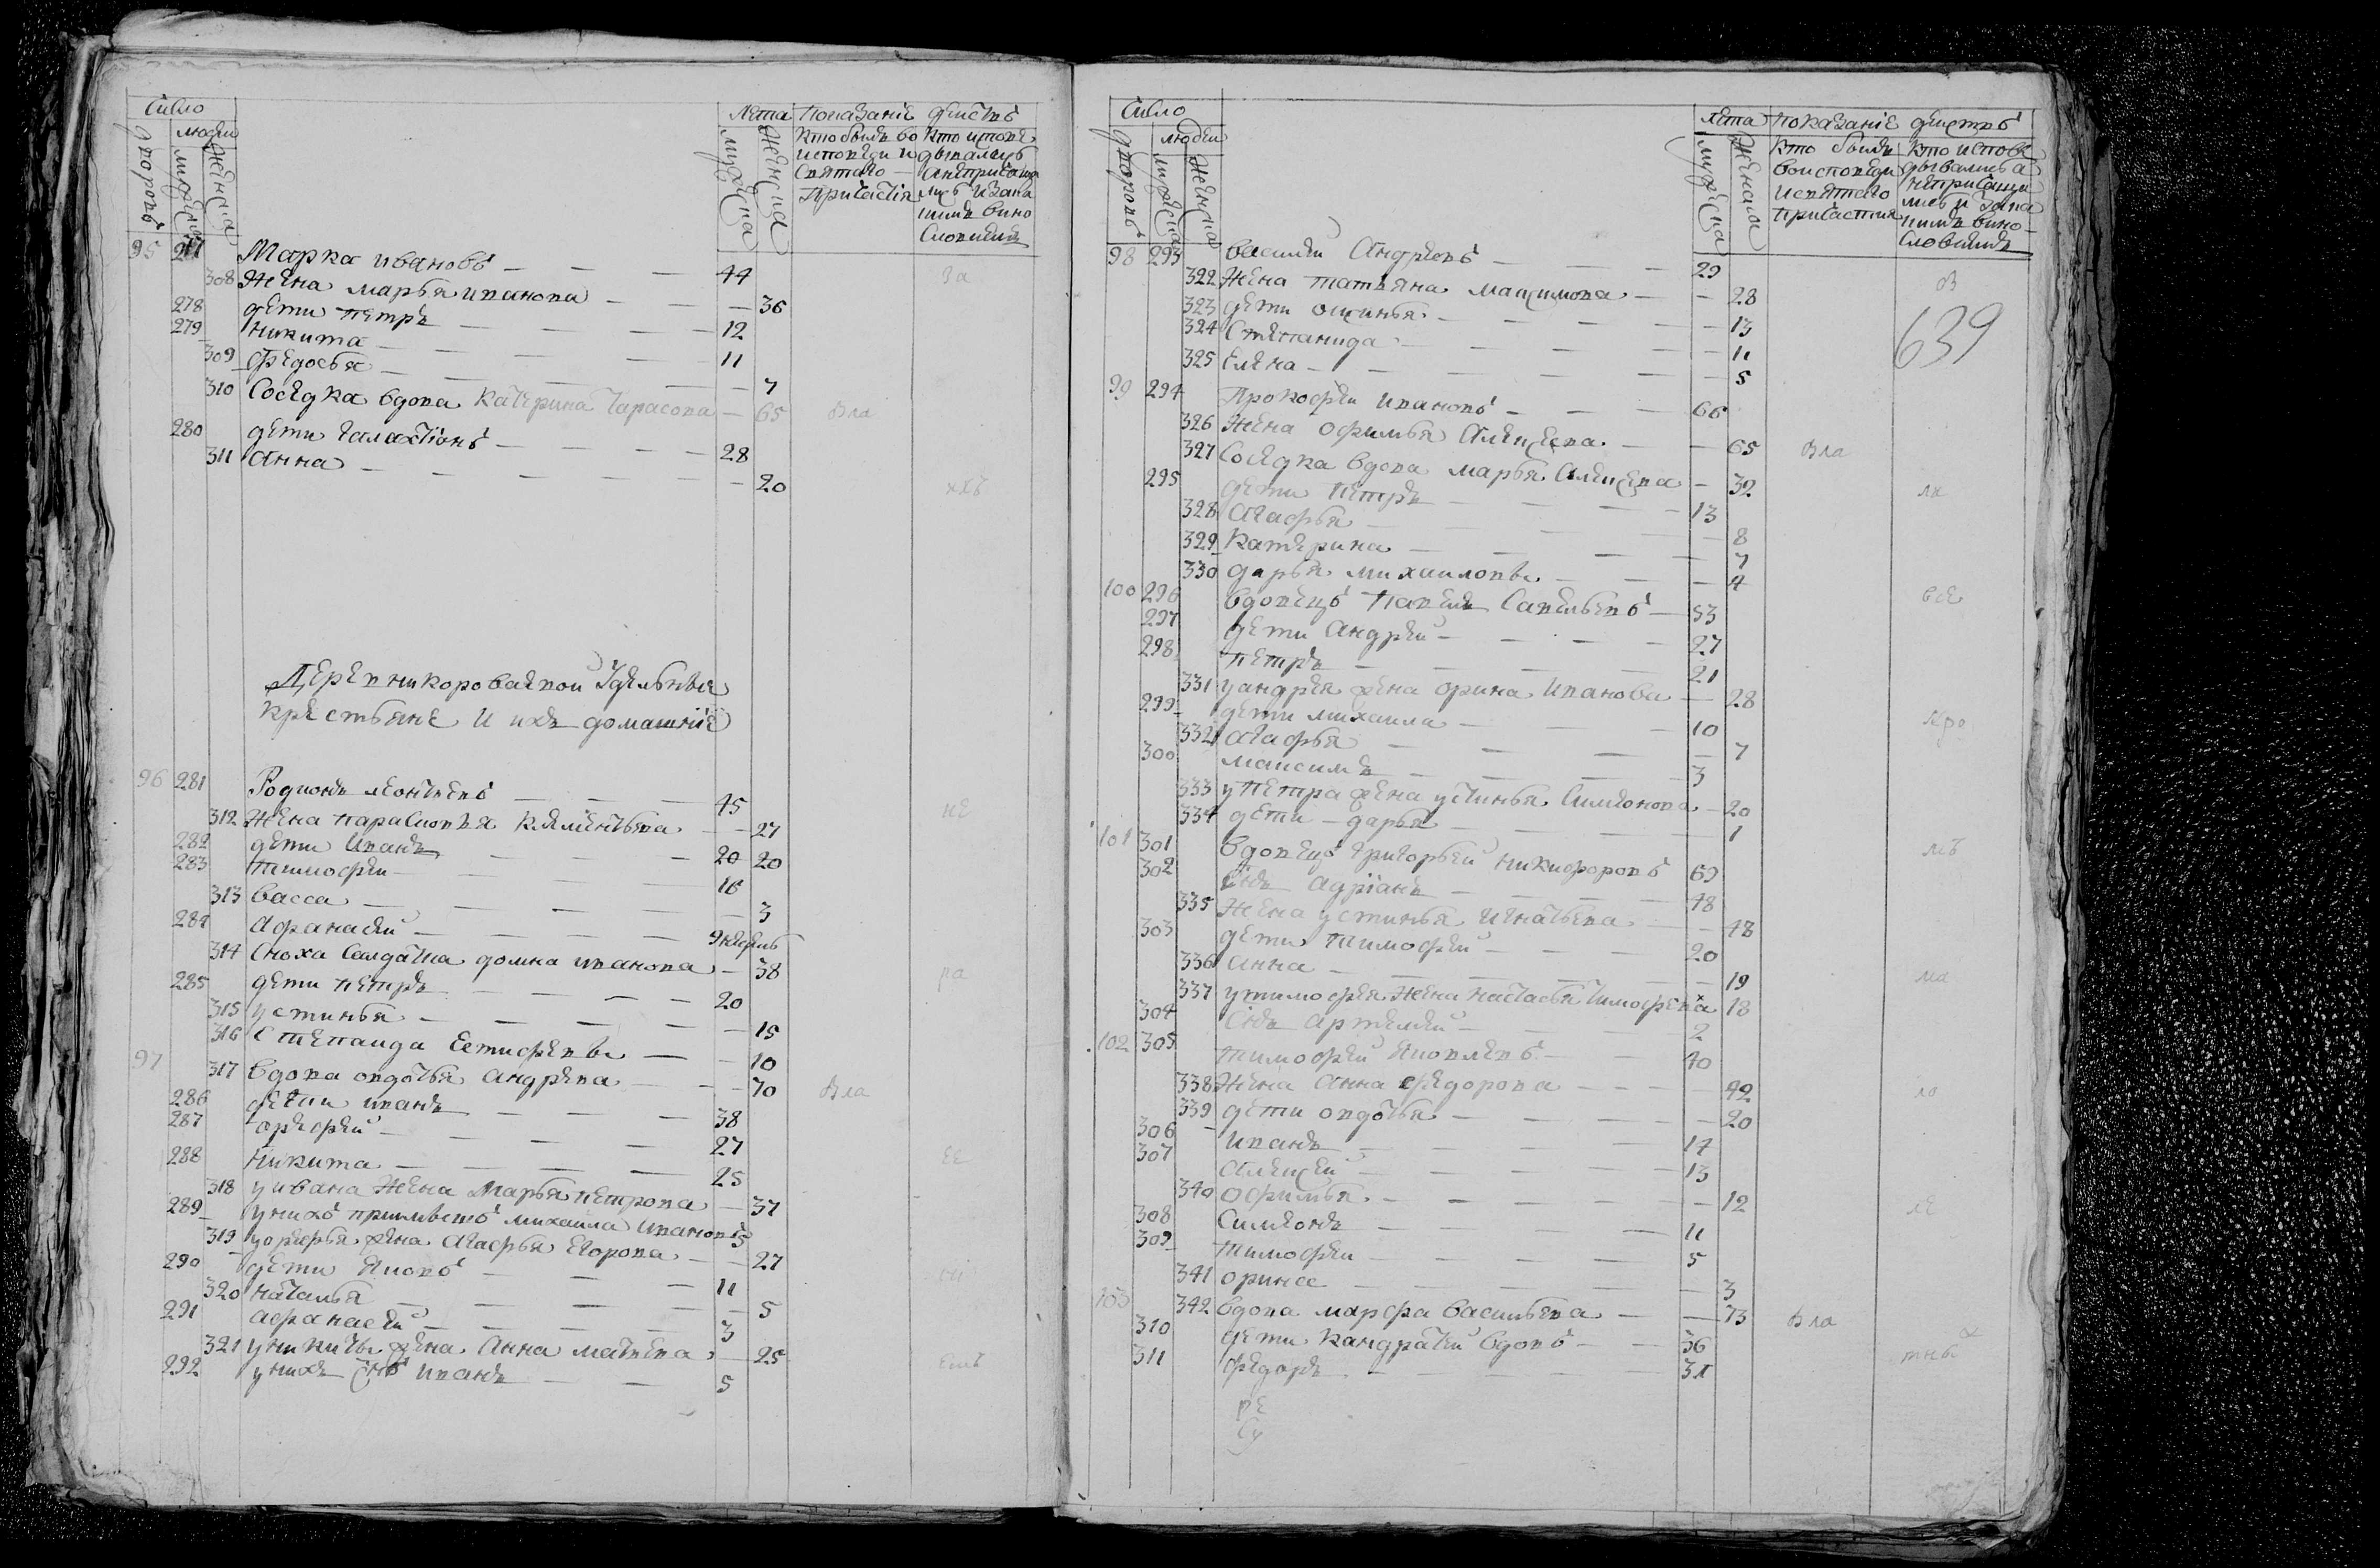 Число
Лета Показаніе действъ
дворовъ
людеи
мужеска
женска
мужеска
женска
Кто былъ во
исповеди и
святаго
причастія
Кто испове
дывались
а непричаща
лись и за ка
кимъ вино
словиемъ
95 277 Марка ивановъ — — — 44
308 Жена марья иванова — — — 36
278 дети петръ — — — 12
279 никита — — — 11
309 федосья — — — 7
310 Соседка вдова Катерина тарасова — 65
280 дети галахтіонъ — — — 28
311 Анна — — — 20
Деревни короваевой Удельныя
крестьяне и ихъ домашніе
96 281 Родионъ леонтьевъ — — — 45
312 Жена парасковья клементьева — — 27
282 дети иванъ — — — 20 20
283 тимофеи — — — 16
313 васса — — — 3
284 Афанасеи — — —
314 сноха салдатка домна иванова — 38
285 дети петръ — — — 20
315 устинья — — — 15
316 степанида — — 10
97 317 Вдова овдотья андреева — — 70
286 дети иванъ — — — 38
287 — — — 27
288 никита — — — 25
318 у ивана жена марья петрова — 37
289 у нихъ михаила ивановъ 5
319 жена агафья егорова — 27
290 дети яковъ — — — 11
320 наталья — — — 5
291 афанасеи — — — 3
321 у никиты жена анна матвеева — 25
292 у нихъ снъ иванъ — — — 5
Число
Лета Показаніе действъ
дворовъ
людеи
мужеска
женска
мужеска
женска
Кто былъ
во исповеди
и святаго
причастия
Кто испове
дывались а
непричаща
лись и за ка
кимъ вино
словиемъ
639
98 293 василеи Андреевъ — — — 29
322 Жена татьяна максимова — — 28
323 дети оксинья — — — 13
324 Степанида — — — 11
325 Елена — — — 5
99 294 Прокофеи ивановъ — — — 66
326 Жена офимья Алексеева — — 65
327 Соседка вдова марья Алексеева — 32
295 дети петръ — — — 13
328 агафья — — — 8
329 катерина — — — 7
330 дарья михаиловы — — — 4
100 296 вдовецъ павелъ савельевъ — 53
297 дети Андреи — — — 27
298 петръ — — — 21
331 у андрея жена орина иванова — 28
299 дети михаила — — — 10
332 агафья — — — 7
300 максимъ — — — 3
333 у петра жена устинья симеонова — 20
334 дети — дарья — — — 1
101 301 Вдовецъ григорьеи никифоровъ 69
302 снъ адріанъ — — — 48
335 Жена устинья игнатьева — — 48
303 дети тимофеи — — — 20
336 анна — — — 19
337 у тимофея жена настасья тимофеева 18
304 снъ артемеи — — — 2
102 305 тимофеи яковлевъ — — 40
338 Жена анна федорова — — — 42
339 дети овдотья — — — 20
306 иванъ — — — 14
307 алексеи — — — 13
340 офимья — — — 12
308 симеонъ — — — 11
309 тимофеи — — — 5
341 орина — — — 3
103 342 вдова марфа васильева — — 73
310 дети кандратеи вдовъ — — 36
311 федоръ — — — 31